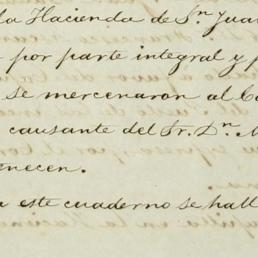 la Hacienda de Sn. Juan
por parte integral y p
se mercenaron al C
causante del Sr. Dn. M
enecen.
a este cuaderno se hall